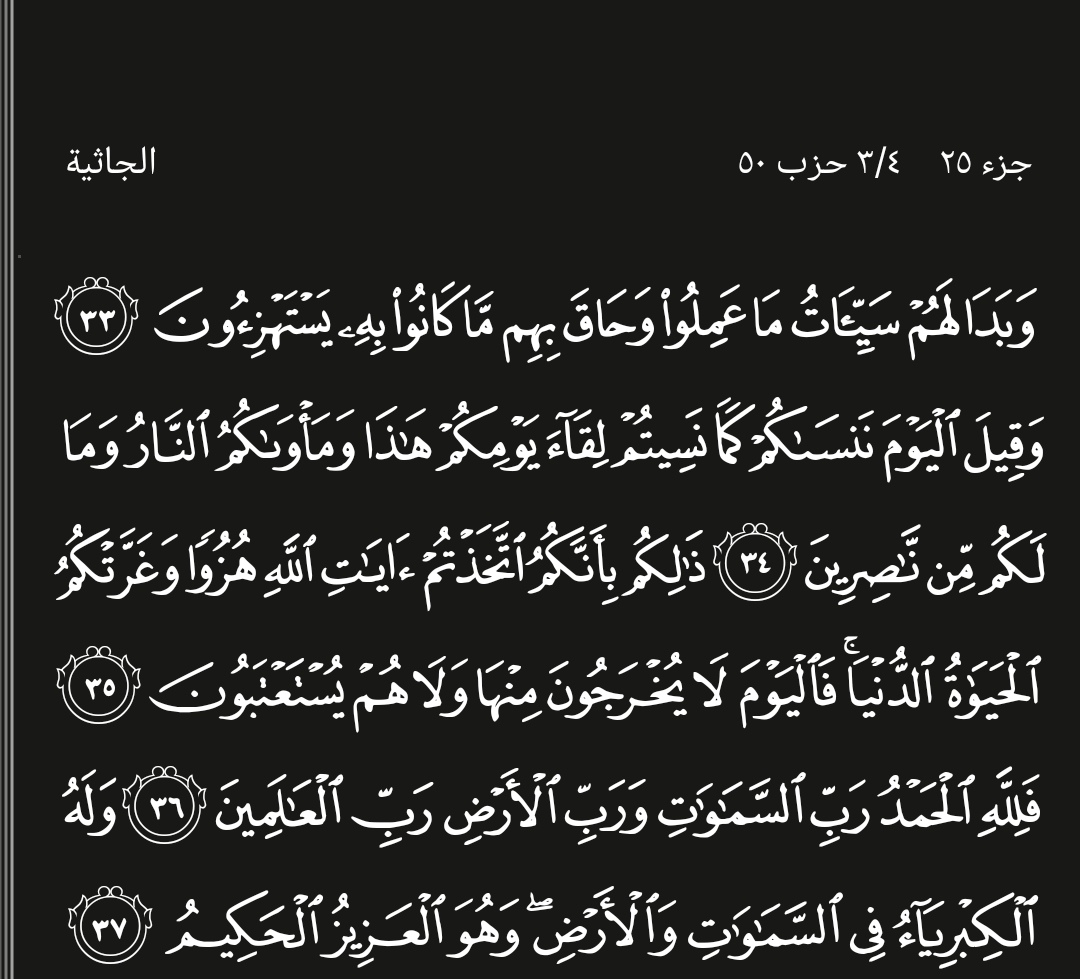 جزء ٢٥ ٣/٤ حزب ٥٠ الجاثية
وَبَدَا لَهُمْ سَيِّـَٔاتُ مَا عَمِلُوا۟ وَحَاقَ بِهِم مَّا كَانُوا۟ بِهِۦ يَسْتَهْزِءُونَ ٣٣
وَقِيلَ ٱلْيَوْمَ نَنسَىٰكُمْ كَمَا نَسِيتُمْ لِقَآءَ يَوْمِكُمْ هَـٰذَا وَمَأْوَىٰكُمُ ٱلنَّارُ وَمَا
لَكُم مِّن نَّـٰصِرِينَ ٣٤ ذَٰلِكُم بِأَنَّكُمُ ٱتَّخَذْتُمْ ءَايَـٰتِ ٱللَّهِ هُزُوًا وَغَرَّتْكُمُ
ٱلْحَيَوٰةُ ٱلدُّنْيَا ۚ فَٱلْيَوْمَ لَا يُخْرَجُونَ مِنْهَا وَلَا هُمْ يُسْتَعْتَبُونَ ٣٥
فَلِلَّهِ ٱلْحَمْدُ رَبِّ ٱلسَّمَـٰوَٰتِ وَرَبِّ ٱلْأَرْضِ رَبِّ ٱلْعَـٰلَمِينَ ٣٦ وَلَهُ
ٱلْكِبْرِيَآءُ فِى ٱلسَّمَـٰوَٰتِ وَٱلْأَرْضِ ۖ وَهُوَ ٱلْعَزِيزُ ٱلْحَكِيمُ ٣٧